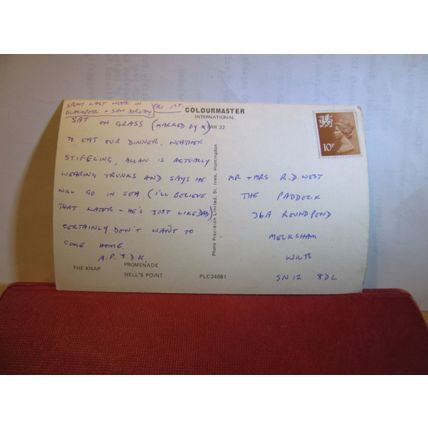 SPENT LAST WEEK IN
COLOURMASTER
INTERNATIONAL
SAT ON GRASS (MARKED BY X)
TO EAT OUR DINNER, WEATHER
STIFELING, ALLAN IS ACTUALLY
WEARING TRUNKS AND SAYS HE
WILL GO IN SEA (I'LL BELIEVE
THAT LATER - HE'S JUST LIKE DAD)
CERTAINLY DON'T WANT TO
COME HOME
A.P.J.D.K
THE KNAP
PROMENADE
HELL'S POINT
PLC24681
Photo Precision Limited, St. Ives, Huntingdon
10P
MR + MRS R.D. WEST
THE PADDOCK
36A ROUNDPOND
MELKSHAM
WILTS
SN12 8DL